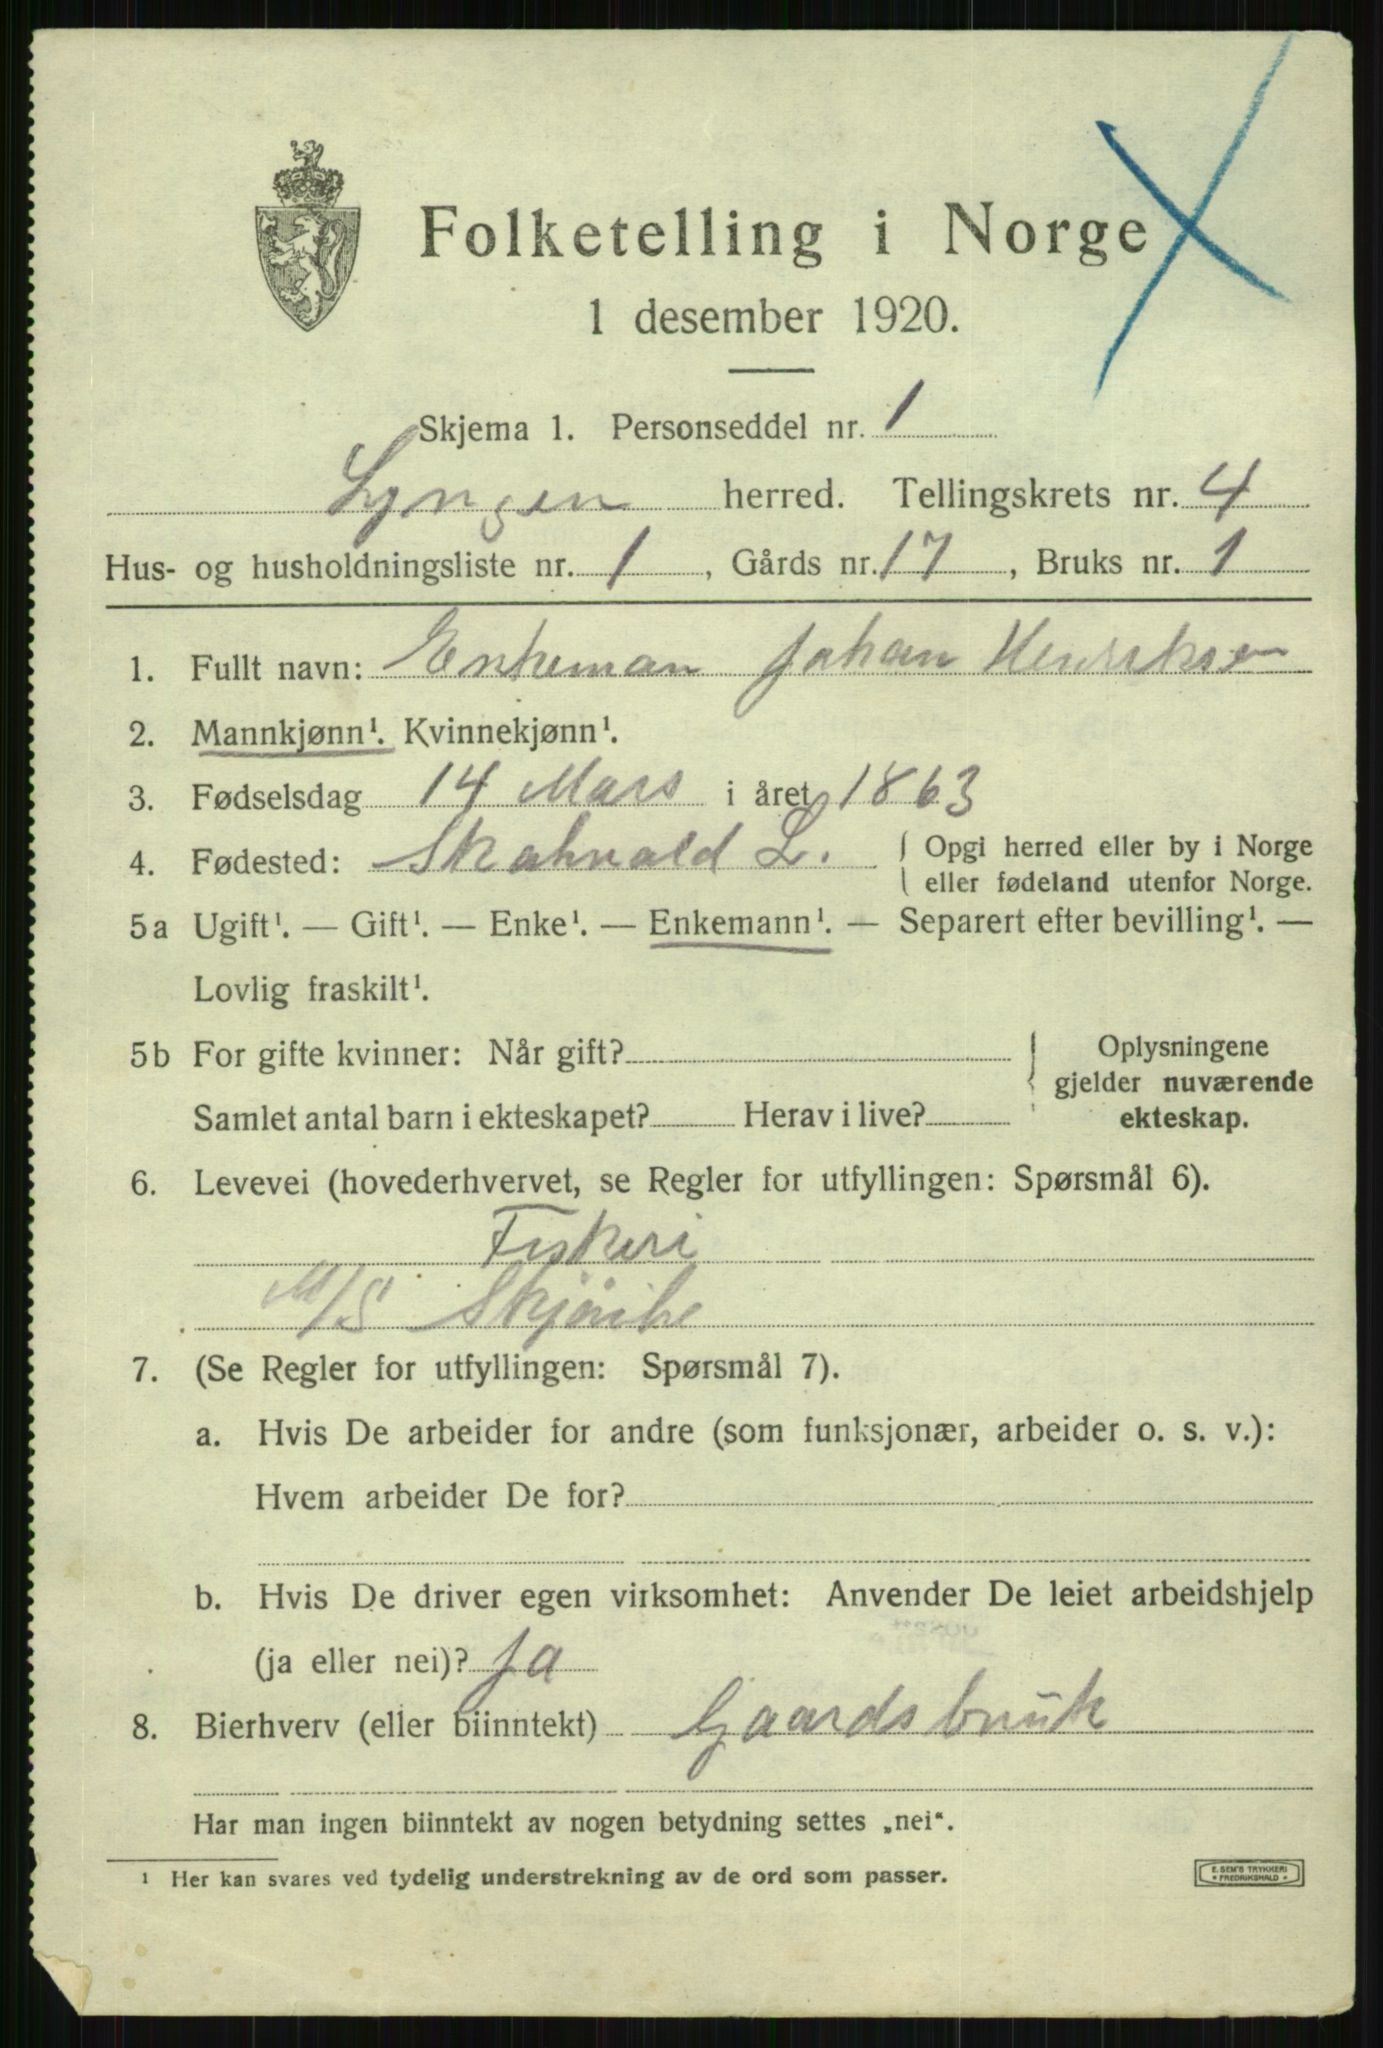 Folketelling i Norge
1 desember 1920.
Skjema 1. Personseddel nr. 1
Lyngen herred. Tellingskrets nr. 4
Hus- og husholdningsliste nr. 1, Gårds nr. 17, Bruks nr. 1
1. Fullt navn: Enkeman Johan Henriksen
2. Mannkjønn¹. Kvinnekjønn¹.
3. Fødselsdag 14 Mars i året 1863
4. Fødested: L. { Opgi herred eller by i Norge
eller fødeland utenfor Norge.
5a Ugift¹. — Gift¹. — Enke¹. — Enkemann¹. — Separert efter bevilling¹. —
Lovlig fraskilt¹.
5b For gifte kvinner: Når gift? { Oplysningene
gjelder nuværende
Samlet antal barn i ekteskapet? Herav i live? ekteskap.
6. Levevei (hovederhvervet, se Regler for utfyllingen: Spørsmål 6).
Fiskeri
M/S
7. (Se Regler for utfyllingen: Spørsmål 7).
a. Hvis De arbeider for andre (som funksjonær, arbeider o. s. v.):
Hvem arbeider De for?
b. Hvis De driver egen virksomhet: Anvender De leiet arbeidshjelp
(ja eller nei)? Ja
8. Bierhverv (eller biinntekt) Gaardsbruk
Har man ingen biinntekt av nogen betydning settes „nei“.
¹ Her kan svares ved tydelig understrekning av de ord som passer.
E. SEM'S TRYKKERI
* FREDRIKSHALD *